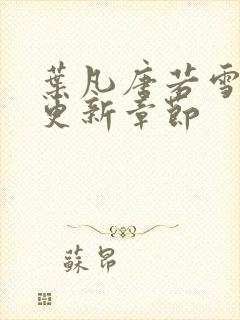 葉凡唐若雪
更新章節
蘇昂